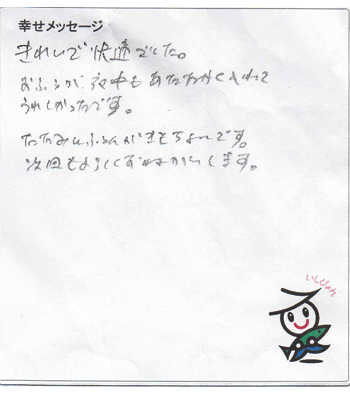 幸せメッセージ
きれいで快適でした。
おふろが、夜中もあたたかくてれて
うれしかったです。
たたみにふとんがきもちよいです。
次回もよろしくおねがいします。